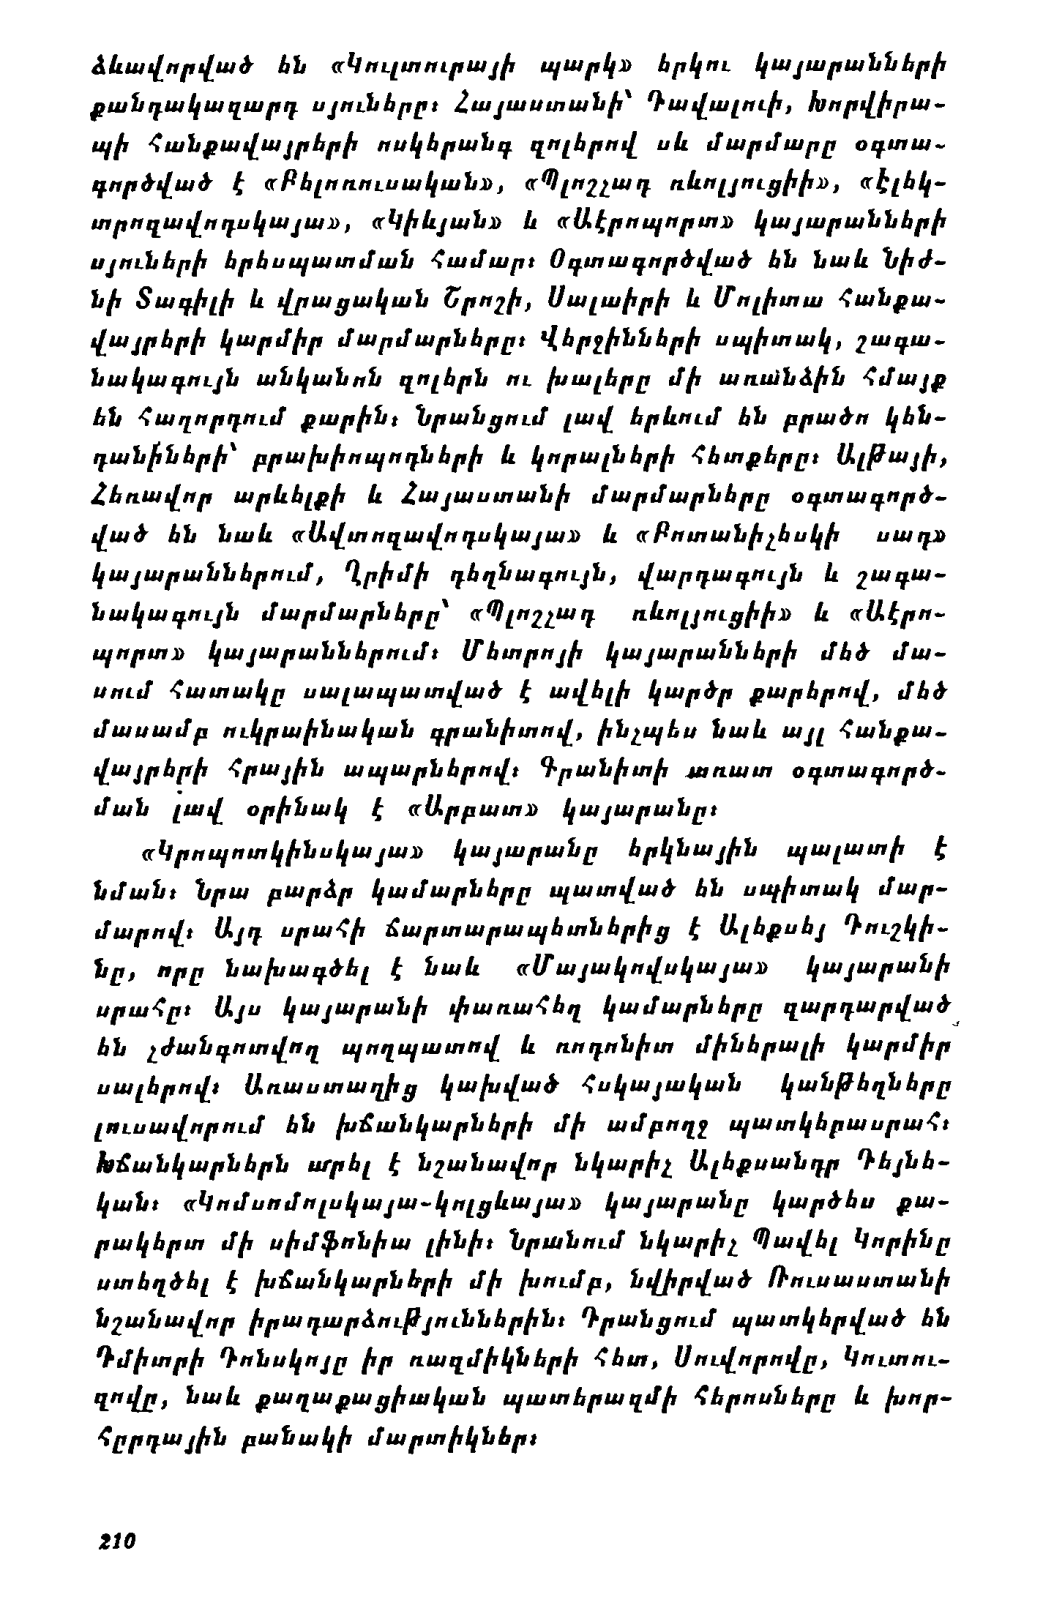 ձևավորված են «Կուլտուրայի պարկ» երկու կայարանների
քանդակազարդ սյուները։ Հայաստանի՝ Դավալուի, Խորվիրա-
պի հանքավայրերի ոսկերանգ զոլերով սև մարմարը օգտա-
գործված է «Բելոռուսական», «Պլոշչադ ռևոլյուցիի», «Էլեկ-
տրոզավոդսկայա», «Կիևյան» և «Աէրոպորտ» կայարանների
սյուների երեսպատման համար։ Օգտագործված են նաև Նիժ-
նի Տագիլի և վրացական Շրոշի, Սալաիրի և Մոլիտա հանքա-
վայրերի կարմիր մարմարները։ Վերջինների սպիտակ, շագա-
նակագույն անկանոն զոլերն ու խալերը մի առանձին հմայք
են հաղորդում քարին։ Նրանցում լավ երևում են բրածո կեն-
դանիների՝ բրախիոպոդների և կորալների հետքերը։ Ալթայի,
Հեռավոր արևելքի և Հայաստանի մարմարները օգտագործ-
ված են նաև «Ավտոզավոդսկայա» և «Բոտանիչեսկի սադ»
կայարաններում, Ղրիմի դեղնագույն, վարդագույն և շագա-
նակագույն մարմարները՝ «Պլոշչադ ռևոլյուցիի» և «Աէրո-
պորտ» կայարաններում։ Մետրոյի կայարանների մեծ մա-
սում հատակը սալապատված է ավելի կարծր քարերով, մեծ
մասամբ ուկրաինական գրանիտով, ինչպես նաև այլ հանքա-
վայրերի հրային ապարներով։ Գրանիտի առատ օգտագործ-
ման լավ օրինակ է «Արբատ» կայարանը։
«Կրոպոտկինսկայա» կայարանը երկնային պալատի է
նման։ Նրա բարձր կամարները պատված են սպիտակ մար-
մարով։ Այդ սրահի ճարտարապետներից է Ալեքսեյ Դուշկի-
նը, որը նախագծել է նաև «Մայակովսկայա» կայարանի
սրահը։ Այս կայարանի փառահեղ կամարները զարդարված
են չժանգոտվող պողպատով և ռոդոնիտ միներալի կարմիր
սալերով։ Առաստաղից կախված հսկայական կանթեղները
լուսավորում են խճանկարների մի ամբողջ պատկերասրահ։
Խճանկարներն արել է նշանավոր նկարիչ Ալեքսանդր Դեյնե-
կան։ «Կոմսոմոլսկայա-կոլցևայա» կայարանը կարծես քա-
րակերտ մի սիմֆոնիա լինի։ Նրանում նկարիչ Պավել Կորինը
ստեղծել է խճանկարների մի խումբ, նվիրված Ռուսաստանի
նշանավոր իրադարձություններին։ Դրանցում պատկերված են
Դմիտրի Դոնսկոյը իր ռազմիկների հետ, Սուվորովը, Կուտու-
զովը, նաև քաղաքացիական պատերազմի հերոսները և խոր-
հըրդային բանակի մարտիկներ։
210